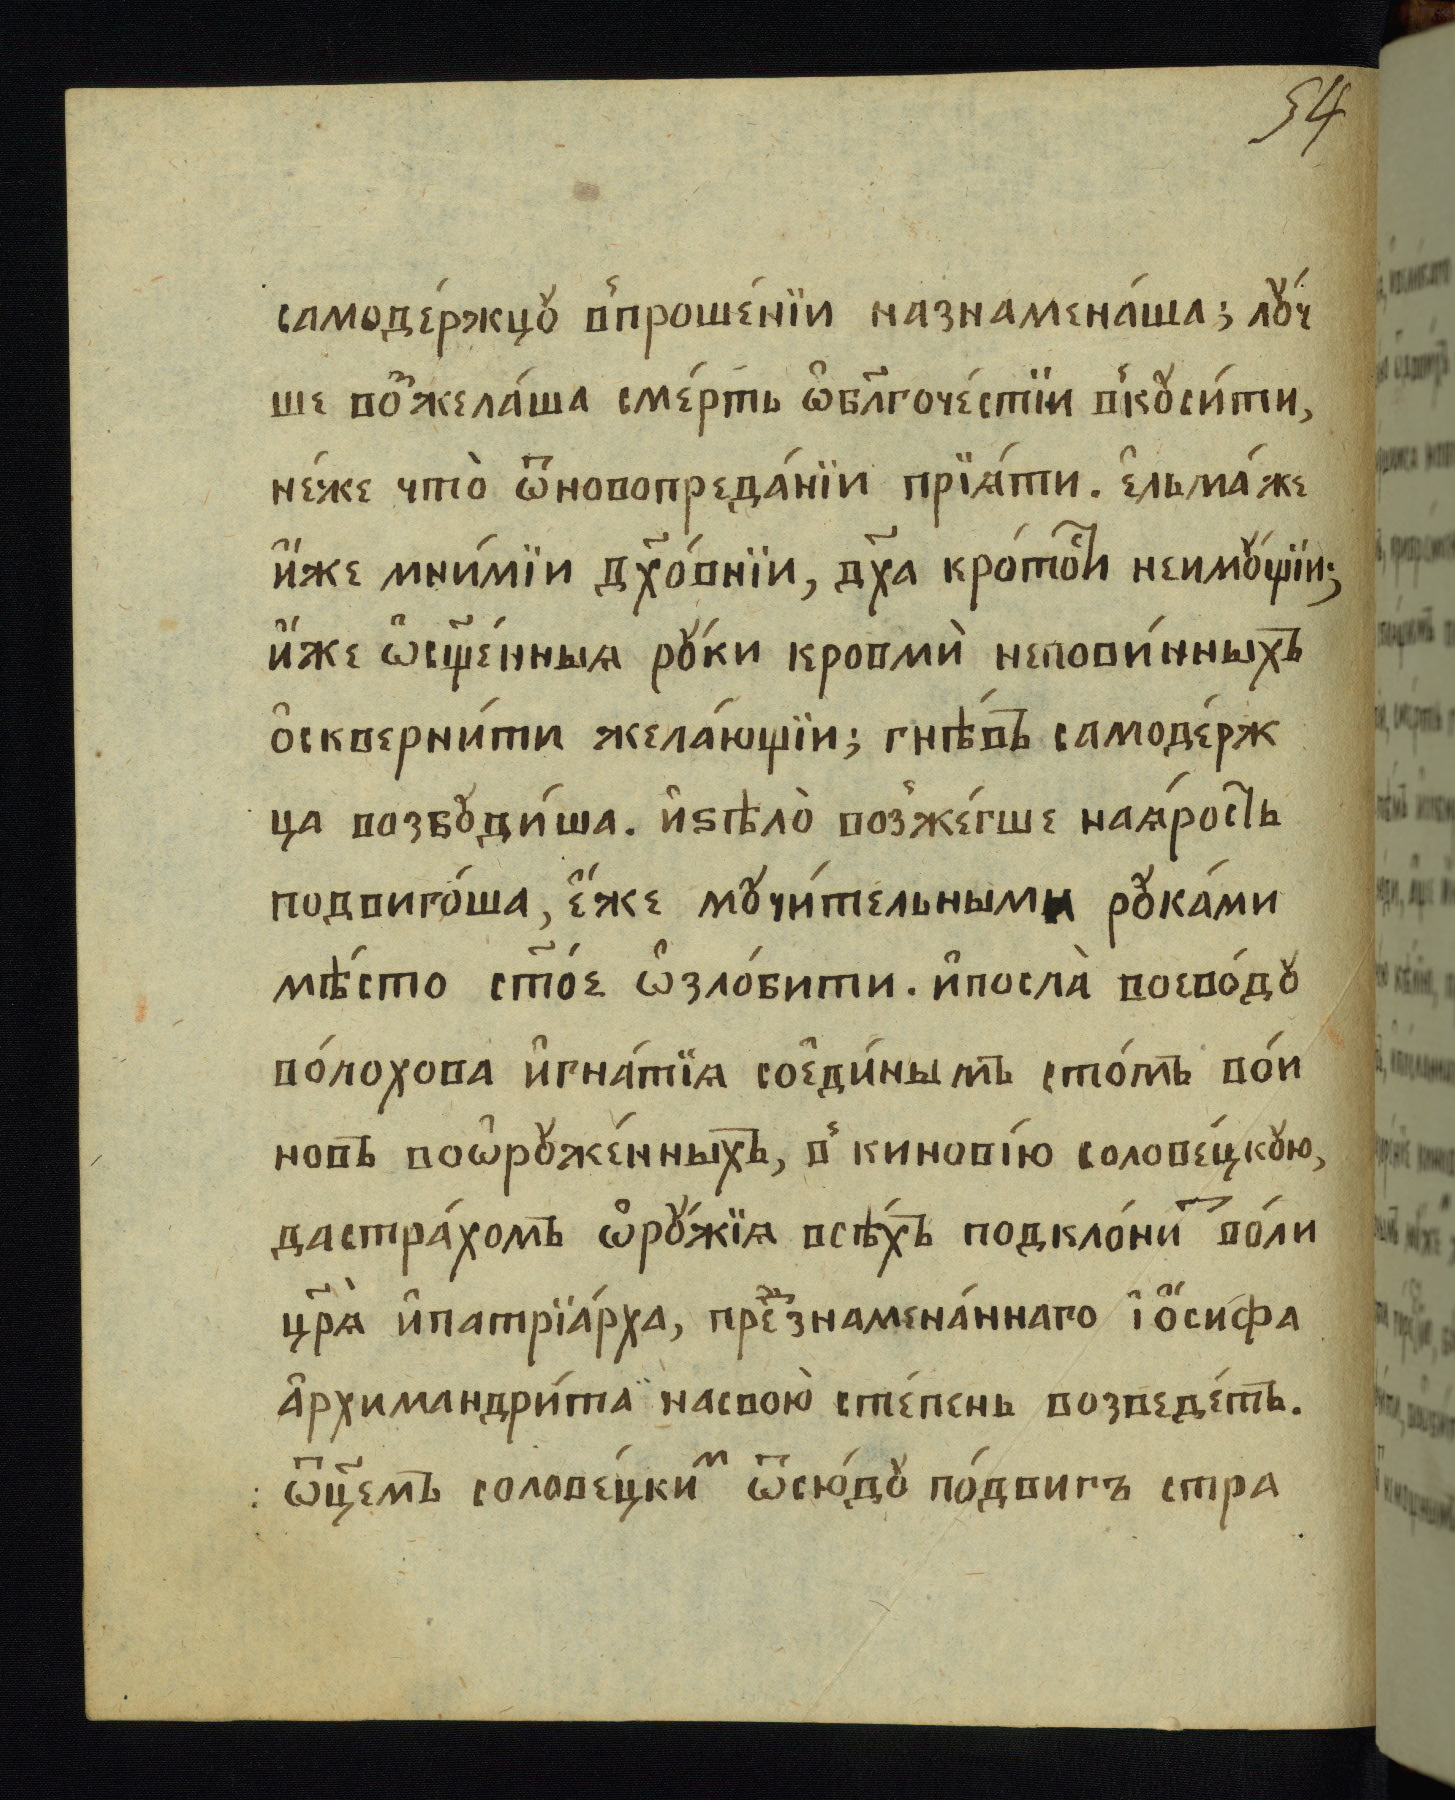 54
самоде́ржцꙋ в̾проше́нїи назнамена́ша; лꙋ́ч
ше воⷥжела́ша сме́рть ѡ҆бл҃гоче́стїи в̾кꙋси́ти,
не́же что̀ ѿновопреда́нїи прїѧ́ти. є҆льма́же
и҆́же мни́мїи дх҃о́внїи, дх҃а кро́тоⷭ҇и неимꙋ́щїи;
и҆́же ѡ҆сщ҃е́нныѧ рꙋ́ки кровмѝ непови́нныхъ
о҆скверни́ти жела́ющїи; гнѣ́въ самоде́рж
ца возбꙋди́ша. и҆ѕѣло̀ воз̾же́гше наꙗ́рость
подвиго́ша, є҆́же мꙋчи́тельными рꙋка́ми
мѣ́сто ст҃о́е ѡ҆зло́бити. и҆посла̀ воево́дꙋ
во́лохова и҆гна́тїѧ сое҆ди́нымъ сто́мъ во́и
новъ воѡ҆рꙋже́нныхъ, в̾ кинові́ю солове́цкꙋю,
дастра́хомъ ѻ҆рꙋ́жїѧ всѣ́хъ подклони́ⷮ во́ли
цр҃ѧ̀ и҆патрїа́рха, преⷣзнамена́ннаго і҆ѡ́сифа
а҆рхимандри́та насвою̀ сте́пень возведе́тъ.
ѿц҃емъ солове́цкиⷨ ѿсю́дꙋ по́двигъ стра